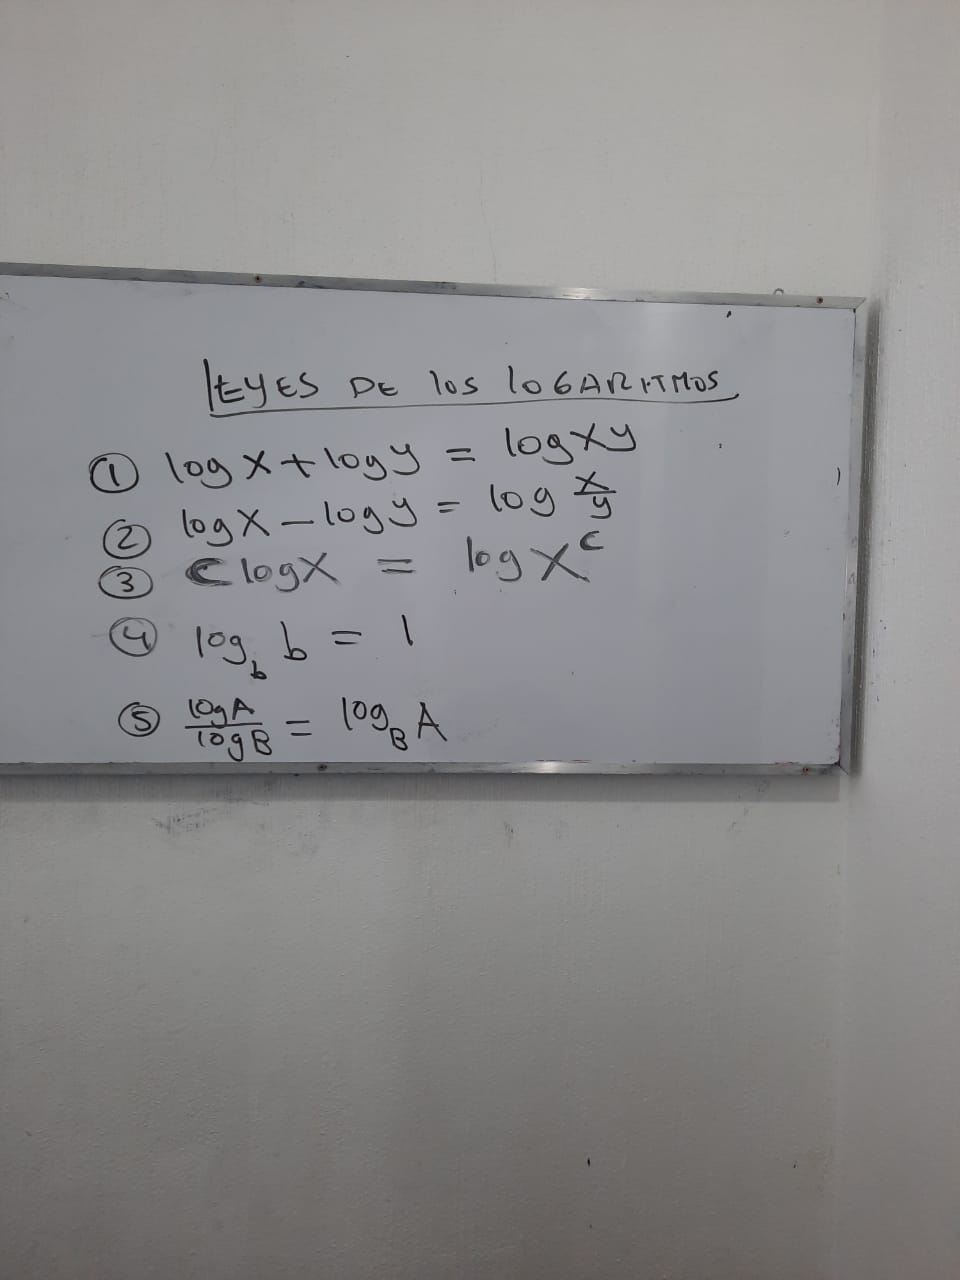 LEYES DE los lOGARITMOS
① log x + log y = log xy
② log x - log y = log x/y
③ C log x = log x^c
④ log_b b = 1
⑤ log A / log B = log_B A